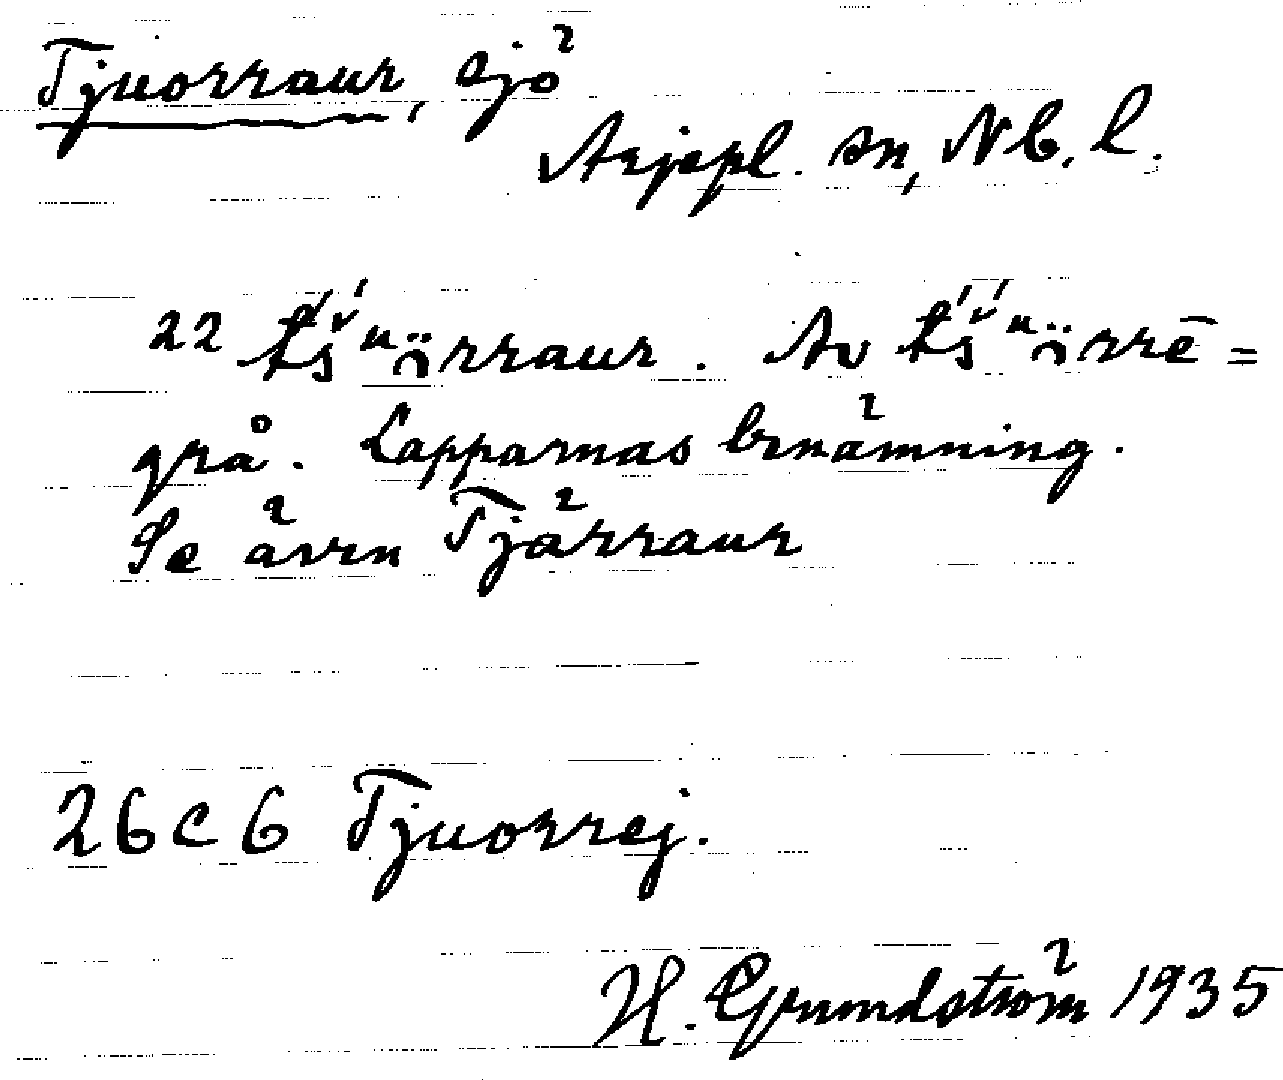 Tjuorraur, sjö
Arjepl. sn, Nb. l.
22
. Av
grå. Lapparnas benämning.
Se även Tjärraur
26 C 6 Tjuorrej.
H. Grundström 1935